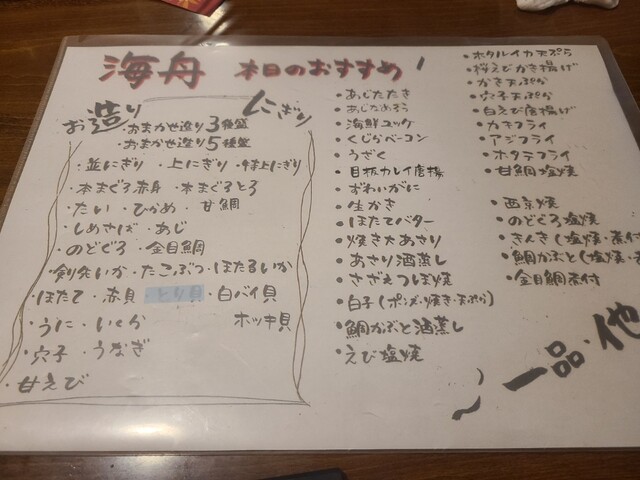 海舟 本日のおすすめ
お造り にぎり
・おまかせ造り3種盛
・おまかせ造り5種盛
・並にぎり ・上にぎり ・特上にぎり
・本まぐろ赤身 ・本まぐろとろ
・たい ・ひらめ ・甘鯛
・しめさば ・あじ
・のどぐろ ・金目鯛
・剣先いか ・たこぶつ ・ほたるいか
・ほたて ・赤貝 とり貝 ・白バイ貝
・うに ・いくら ホッキ貝
・穴子 ・うなぎ
・甘えび
・あじたたき
・あじなめろう
・海鮮ユッケ
・くじらベーコン
・うざく
・目板カレイ唐揚
・ずわいがに
・生かき
・ほたてバター
・焼き大あさり
・あさり酒蒸し
・さざえつぼ焼
・白子(ポン・メ・焼き・天ぷら)
・鯛かぶと酒蒸し
・えび塩焼
・ホタルイカ天ぷら
・桜えびかき揚げ
・かき天ぷら
・穴子天ぷら
・白えび唐揚げ
・カキフライ
・アジフライ
・ホタテフライ
・甘鯛塩焼
・西京焼
・のどぐろ塩焼
・きんき(塩焼・煮付
・鯛かぶと(塩焼・
・金目鯛煮付
一品・他